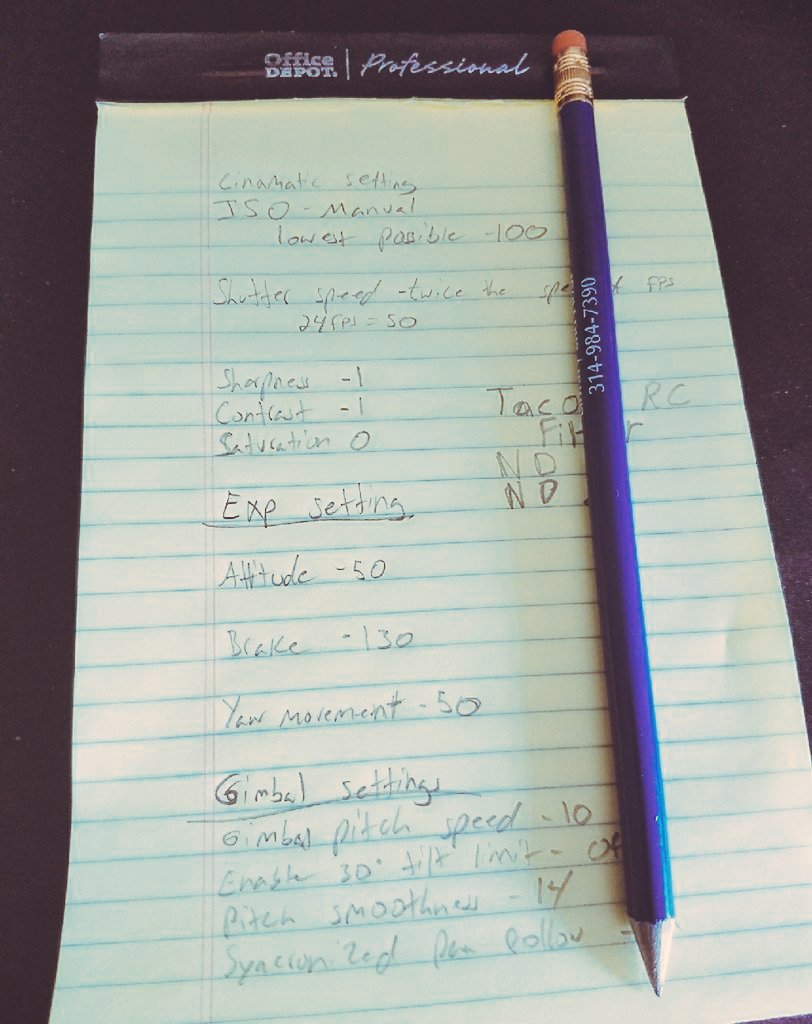 Office DEPOT. | Professional
Cinamatic setting
ISO - Manual
lowest posible -100
Shutter speed -twice the fps
24fps = 50
Sharpness -1
Contrast -1
Taco RC
Saturation 0
ND
ND
Exp setting
Attitude -50
Brake -130
Yaw movement - 50
Gimbal settings
Gimbal pitch speed -10
Enable 30° tilt limit -
Pitch smoothness - 14
Syncronized pan
314-984-7390